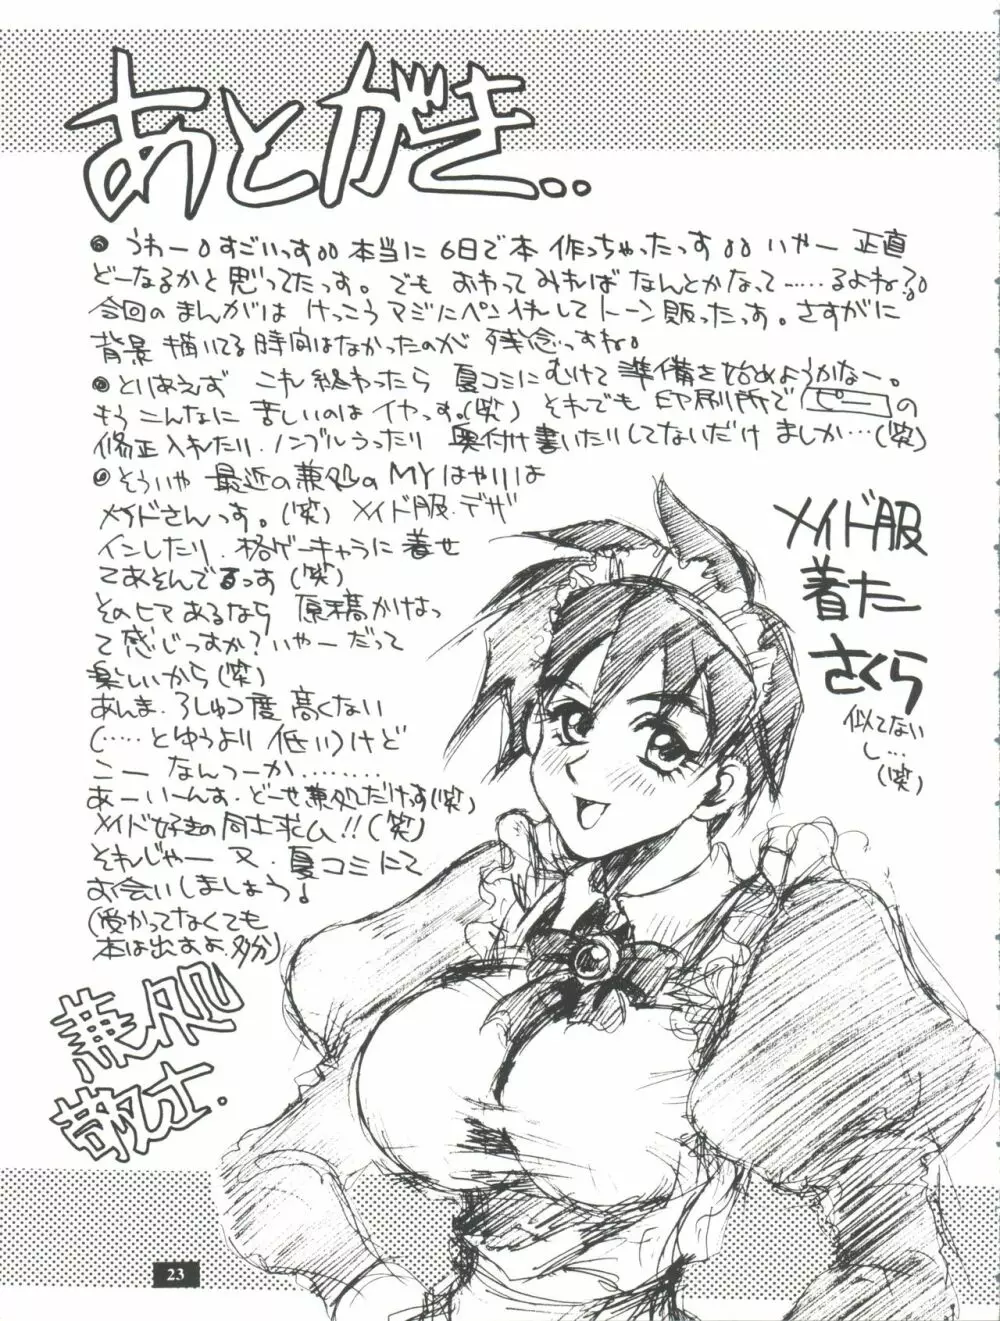 あとがき..
◎ うわー。すごいっす。。本当に 6日で本 作っちゃったっす。。いやー 正直
どーなるかと思ってたっす。でも おわってみれば なんとかなって……るよね?。
今回のまんがは けっこうマジにペン入れして トーン貼ったっす。さすがに
背景 描いてる 時間はなかったのが 残念っすね。
◎とりあえず これ終わったら 夏コミにむけて 準備を始めようかなー。
もうこんなに 苦しいのは イヤっす。(笑) それでも 印刷所で ピー の
修正入れたり、ノンブルうったり 奥付け書いたりしてないだけ ましか…(笑)
◎そういや 最近の兼処の MYはやりは
メイドさんっす。(笑) メイド服、デザ
インしたり、格ゲーキャラに 着せ
てあそんでるっす(笑)
そのヒマあるなら 原稿かけな
って感じっすか?いやーだって
楽しいから(笑)
あんま、ろしゅつ度 高くない
(……とゆうより 低い)けど
こー なんつーか………
あーいーんす、どーせ兼処だけっす(笑)
メイド好きの同士求ム!!(笑)
それじゃー 又、夏コミにて
お会いしましょう!
(受かってなくても
本は出すよ、多分)
兼処
敬士.
メイド服
着た
さくら
似てない
し…
(笑)
23